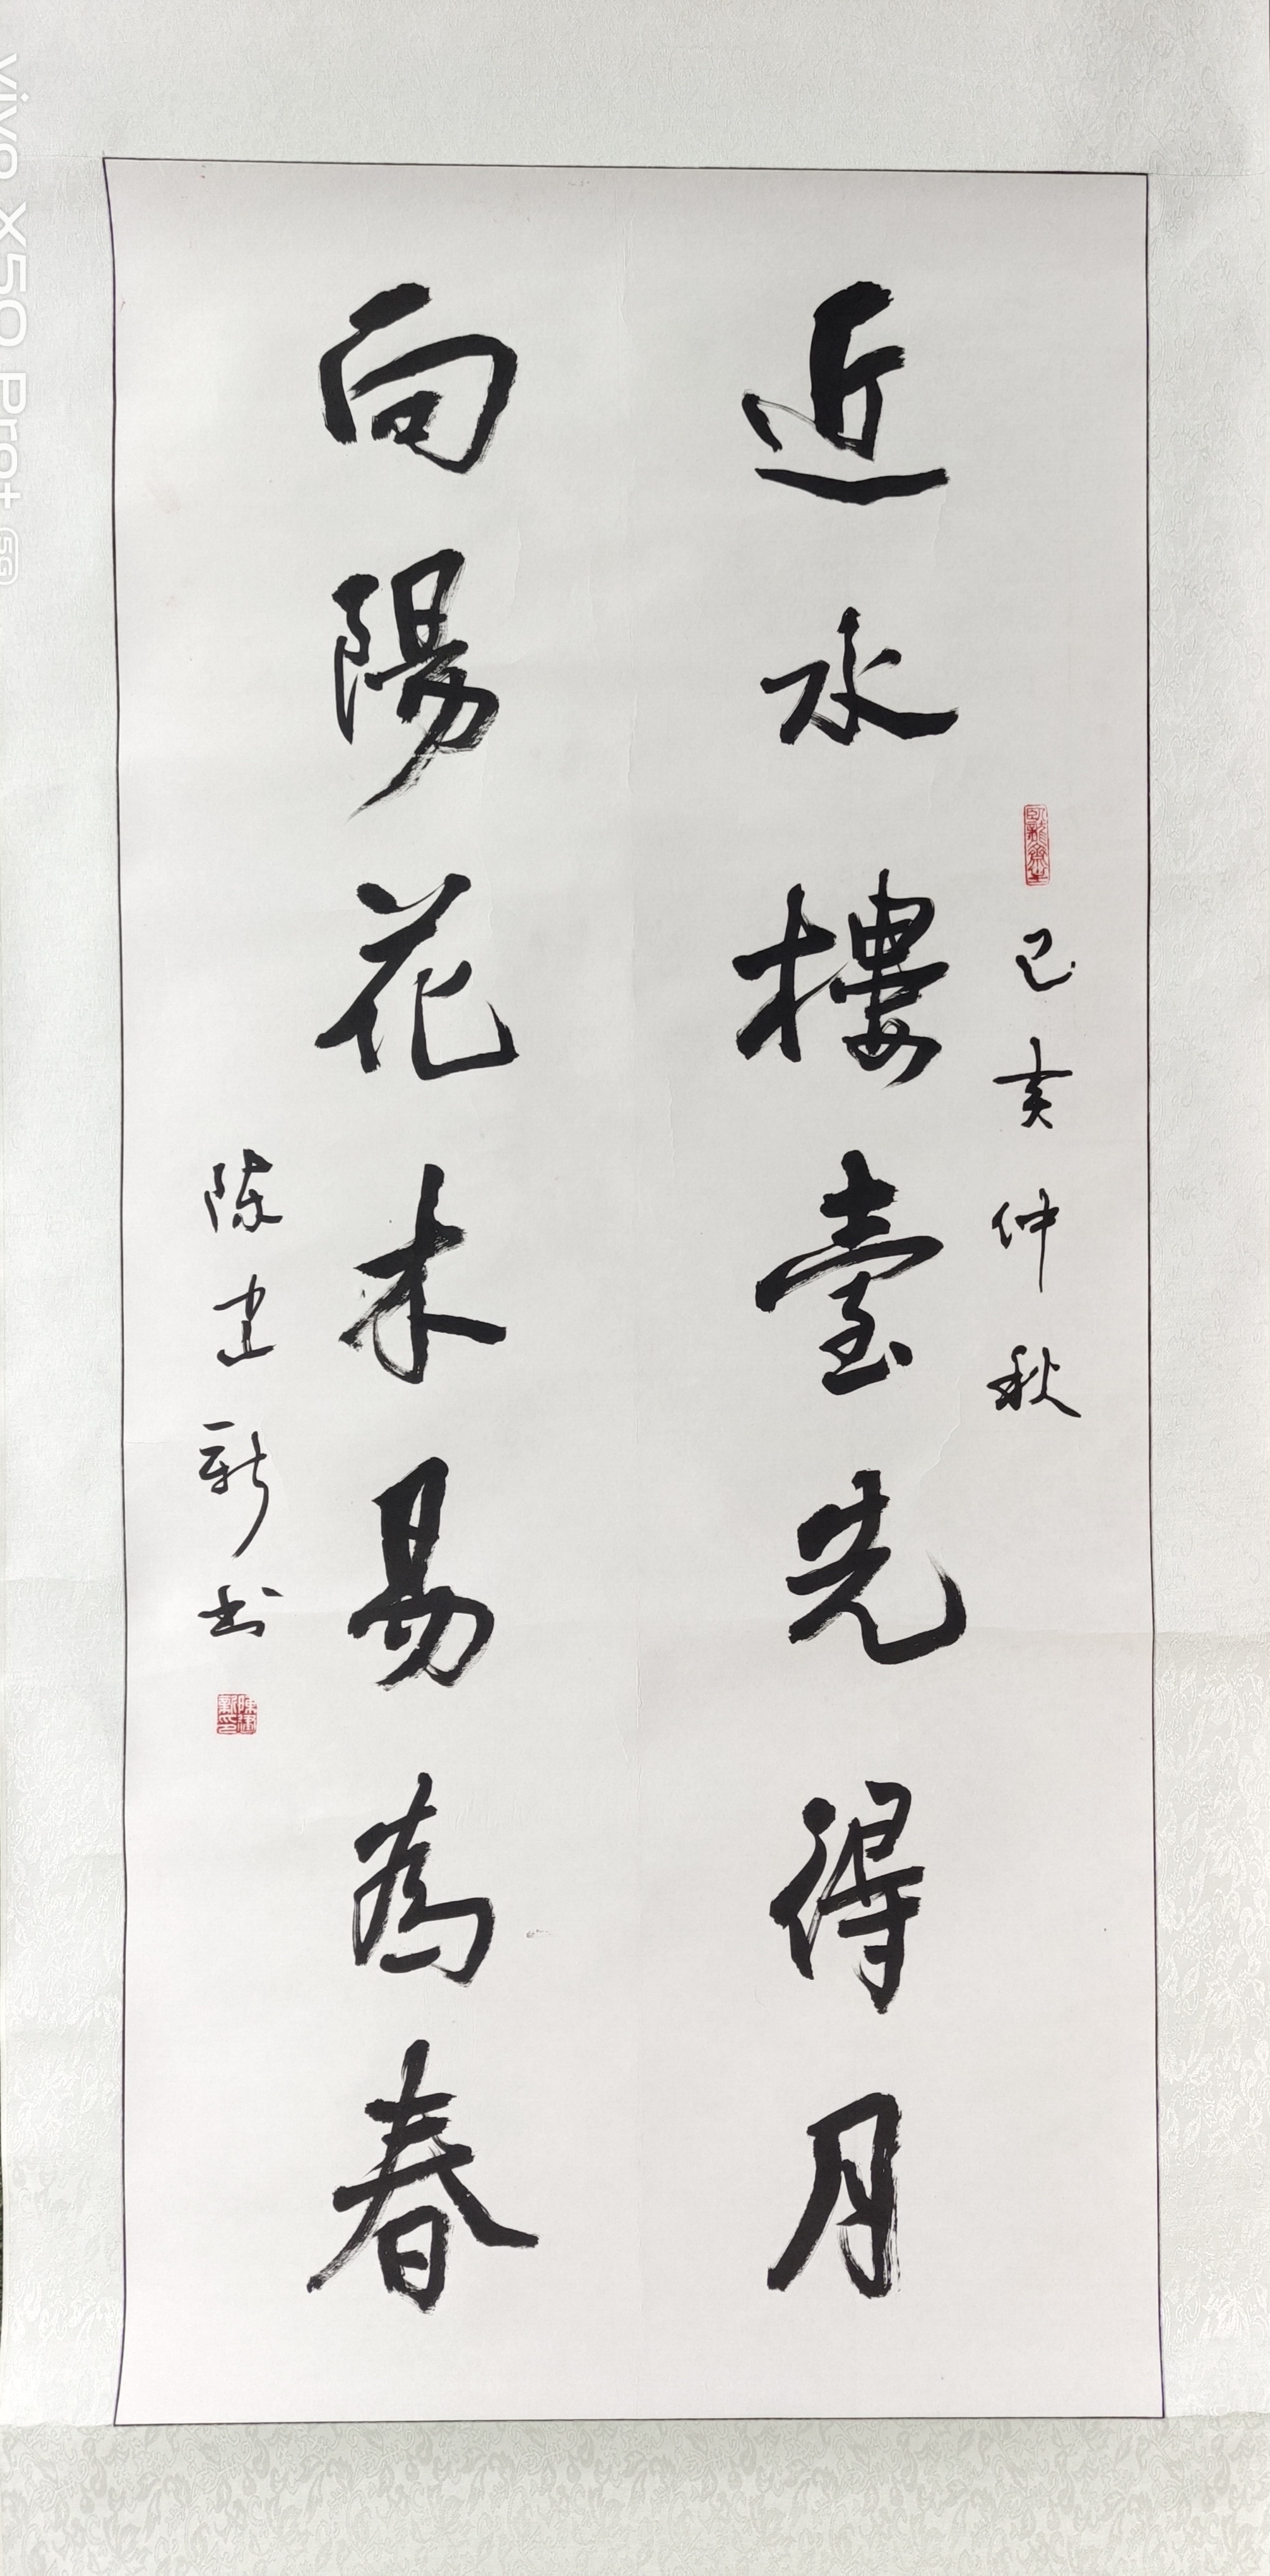 近水樓臺先得月
己亥仲秋
向陽花木易為春
陈建新书
陳建新印
vivo X50 Pro+ 5G